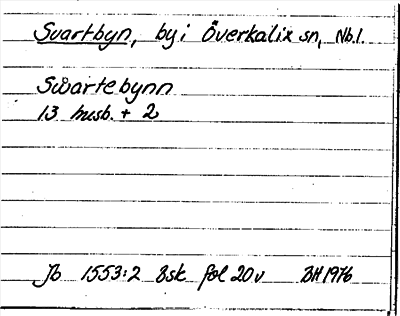 Svartbyn, by i Överkalix sn, Nb.l.
Swartebynn
13 husb. + 2
Jb 1553:2 Bsk fol 20v BH 1976